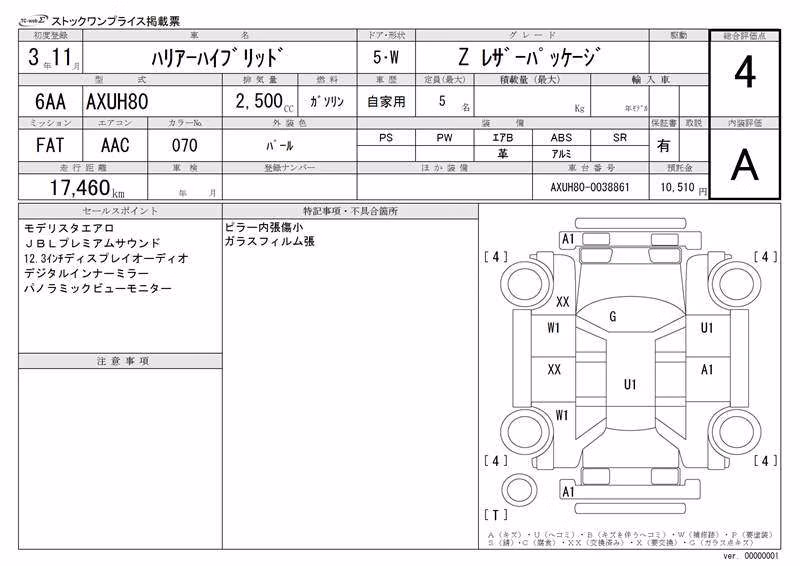 TC-webΣ ストックワンプライス掲載票
初度登録 車名 ドア・形状 グレード 駆動 総合評価点
3年11月 ﾊﾘｱｰﾊｲﾌﾞﾘｯﾄﾞ 5・W Z ﾚｻﾞｰﾊﾟｯｹｰｼﾞ 4
型式 排気量 燃料 車歴 定員(最大) 積載量(最大) 輸入車
6AA AXUH80 2,500CC ｶﾞｿﾘﾝ 自家用 5名 Kg 年ﾓﾃﾞﾙ
ミッション エアコン カラーNo. 外装色 装備 保証書 取説 内装評価
FAT AAC 070 ﾊﾟｰﾙ PS PW ｴｱB ABS SR 有 A
革 ｱﾙﾐ
走行距離 車検 登録ナンバー ほか装備 車台番号 預託金
17,460km 年 月 AXUH80-0038861 10,510円
セールスポイント
モデリスタエアロ
ＪＢＬプレミアムサウンド
12.3ｲﾝﾁディスプレイオーディオ
デジタルインナーミラー
パノラミックビューモニター
注意事項
特記事項・不具合箇所
ピラー内張傷小
ガラスフィルム張
A1
[4] [4]
XX
G
W1 U1
XX A1
U1
W1
[4] [4]
A1
[T]
A(キズ)・U(ヘコミ)・B(キズを伴うヘコミ)・W(補修跡)・P(要塗装)
S(錆)・C(腐食)・XX(交換済み)・X(要交換)・G(ガラス点キズ)
ver. 00000001